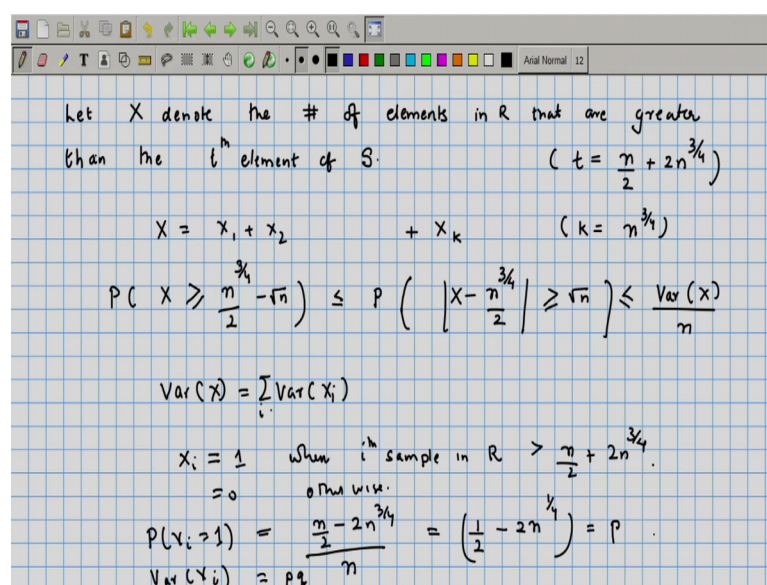 Arial Normal 12
Let X denote the # of elements in R that are greater
than the t^th element of S. (t = n/2 + 2n^3/4)
X = X₁ + X₂ + X_k (k = n^3/4)
P( X ≥ n^3/4/2 - √n ) ≤ P ( |X - n^3/4/2| ≥ √n ) ≤ Var(X)/n
Var(X) = Σ_i Var(X_i)
X_i = 1 when i^th sample in R > n/2 + 2n^3/4.
= 0 otherwise.
P(X_i = 1) = (n/2 - 2n^3/4)/n = (1/2 - 2n^1/4) = P.
Var(X_i) = pq